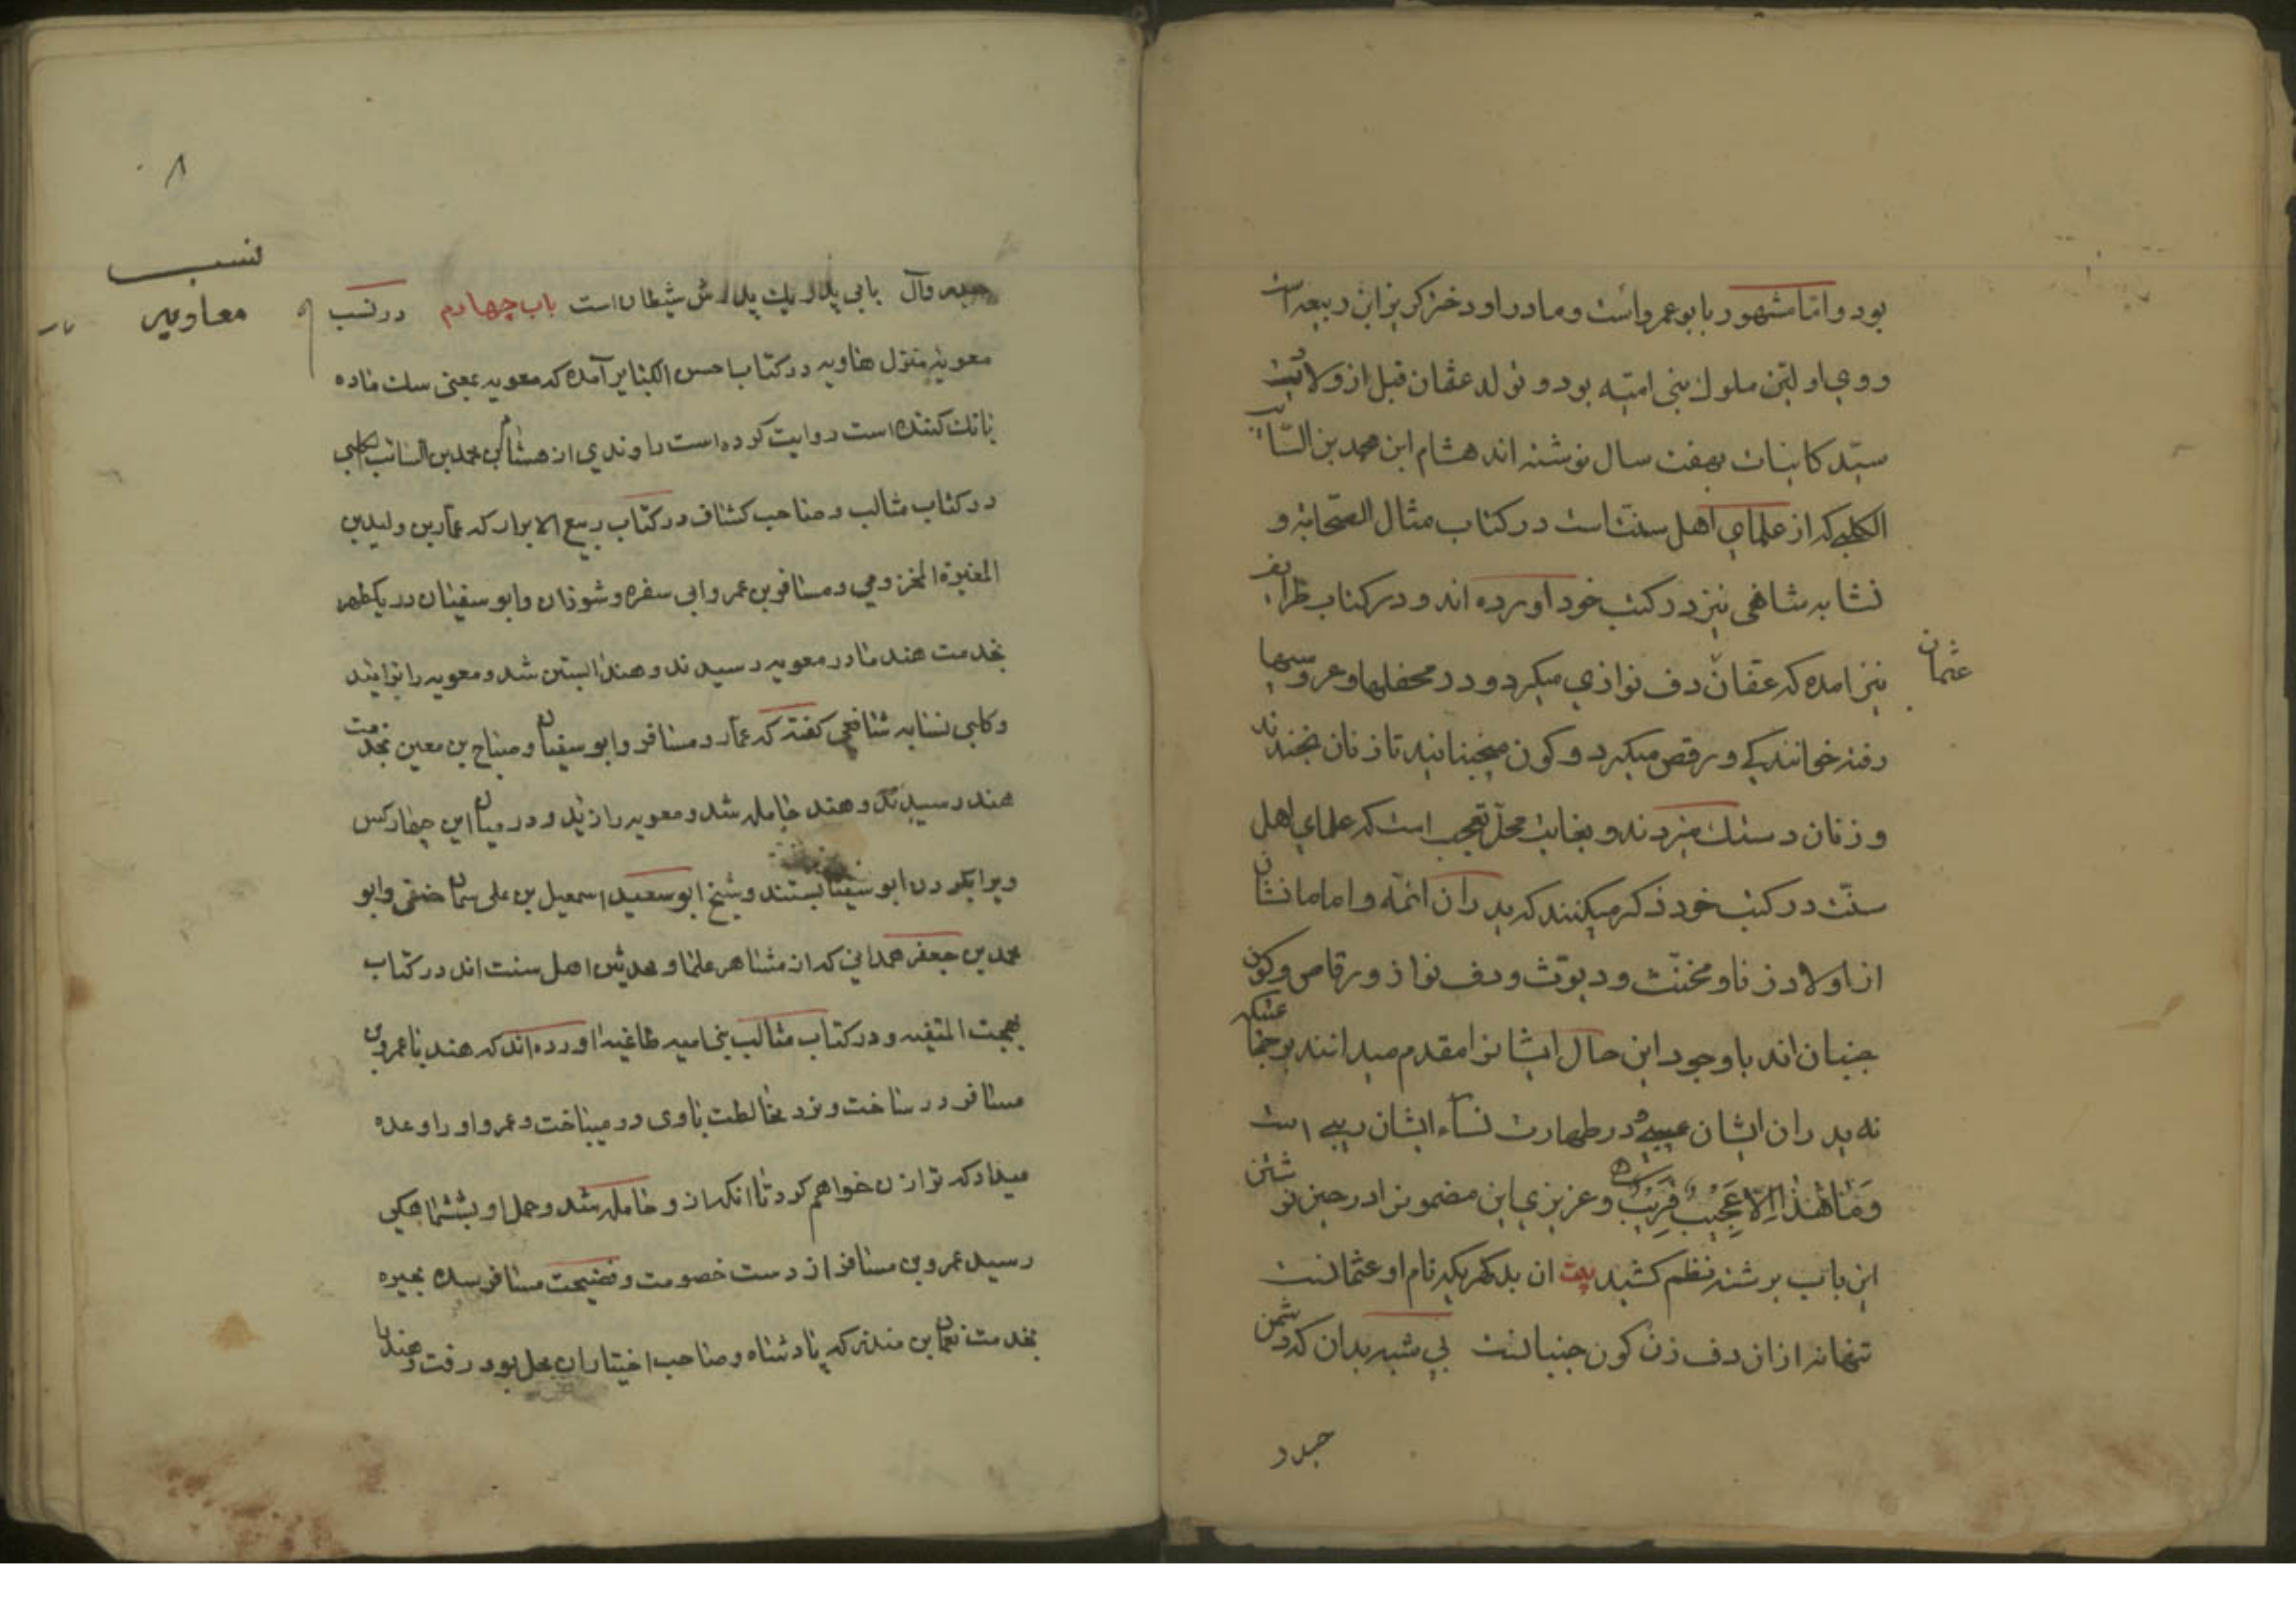 بود و اما مشهور بابو عمرو است و مادر او دختر کریز ابن ربیعه است
و وی اولین ملوک بنی امیّه بود و تولد عفان قبل از ولادت
سیّد کاینات بهفت سال نوشته اند هشام ابن محمد بن السّایب
الکلبی که از علمای اهل سنت است در کتاب مثال الصحابه و
نسّابه شافعی نیز در کتب خود اورده اند و در کتاب ظرایف
عثمان
نیز امده که عفان دف نوازی میکرد و در محفلها و عروسیها
رفته خوانندیکی و رقص میکرد و کون میجنبانید تا زنان بخندند
و زنان دستک میزدند و بغایت محل تعجب است که علمای اهل
سنّت در کتب خود ذکر میکنند که پدران ائمّه و امامانشان
از اولاد زنا و مخنّث و دیوّث و دف نواز و رقاص و کون
جنبان اند باوجود این حال ایشانرا مقدم میدانند بر جمعی که
نه پدران ایشان عیبی و در طهارت نساء ایشان ریبی است
وَمٰا هٰذٰا اِلّا عَجیبٌ قَریبٌ و عزیزی این مضمونرا در حین نوشتن
این باب برشته نظم کشیده بیت ان بد گهریکه نام او عثمانست
تنها نه ازان دف زن کون جنبانست بی شبه بدان که دشمن
حیدر
۸
حیدر و آل یا بی پدر یا پدرش شیطان است باب چهارم در نسب
نسب
معاویه
معویه منزل هاویه در کتاب احسن الکبائر آمده که معویه بمعنی سک ماده
بانک کننده است روایت کرده است راوندی از هشام بن محمد بن السائب کلبی
در کتاب مثالب و صاحب کشاف در کتاب ربیع الابرار که عمار بن ولید بن
المغیرة المخزومی و مسافر بن عمرو ابی سفره و شوذان و ابو سفیان در یکطهر
بخدمت هند مادر معویه رسیدند و هند ابستن شد و معویه را زائید
و کلبی نسابه شافعی کفته که عمار و مسافر و ابو سفیان و صباح بن معین بخدمت
هند رسیدند و هند حامله شد و معویه را زائید و در میان این چهار کس
ویرا بکردن ابو سفیان بستند و شیخ ابو سعید اسمعیل بن علی سمان حنفی و ابو
محمد بن جعفر همدانی که از مشاهر علما و محدثین اهل سنت اند در کتاب
بهجت المتقیه و در کتاب مثالب بنی امیه طاغیه اورده اند که هند با عمرو بن
مسافر در ساخت و نرد مخالطت باوی در میباخت و عمرو او را وعده
میداد که ترا زن خواهم کرد تا انکه ازو حامله شد و حمل او بششماهکی
رسید عمرو بن مسافر از دست خصومت و فضیحت مسافر شده بحیره
بخدمت نعمان بن منذر که پادشاه و صاحب اختیار ان محل بود رفت و هند را